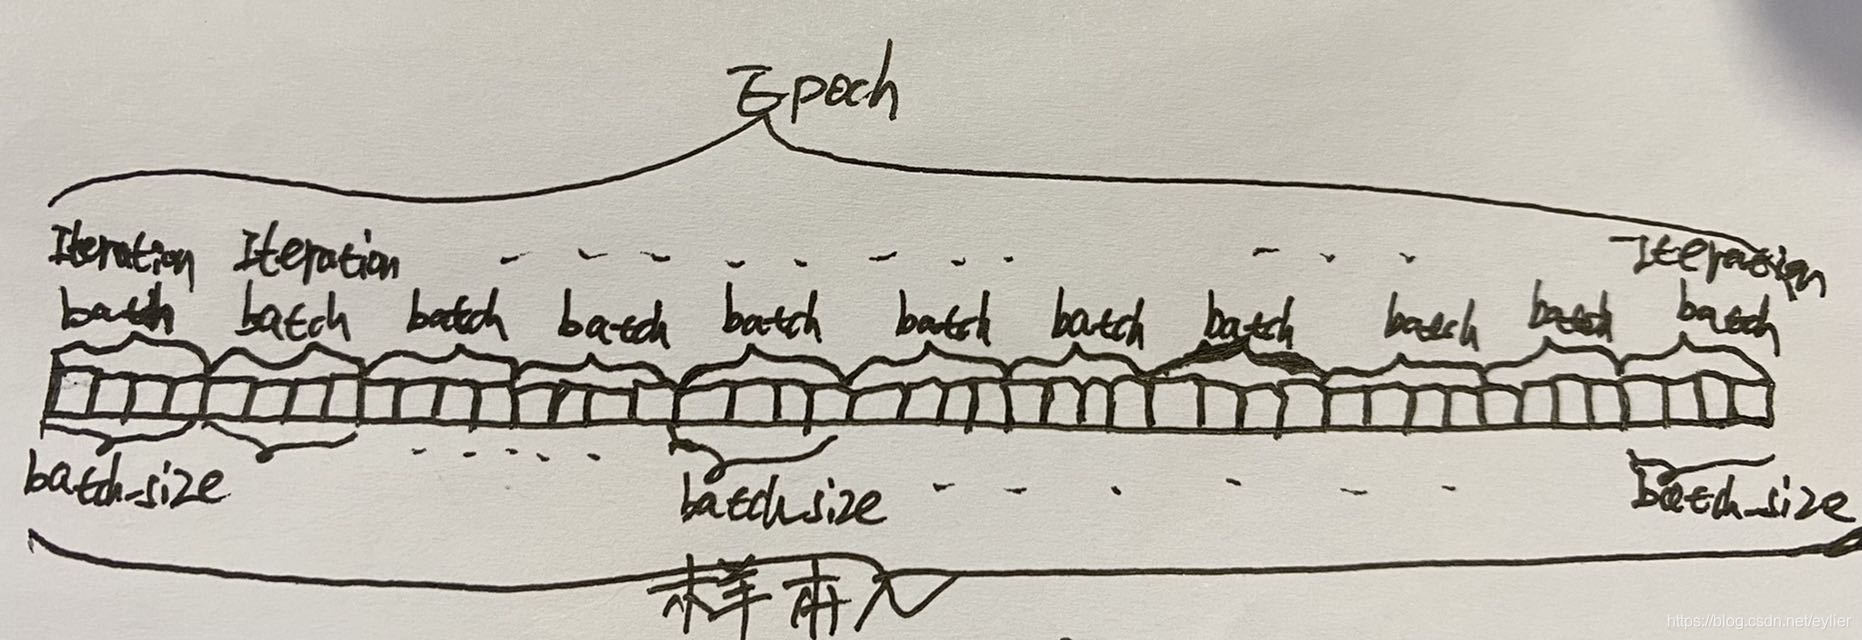 Epoch
Iteration Iteration Iteration
batch batch batch batch batch batch batch batch batch batch batch
batch_size batch_size batch_size
样本
https://blog.csdn.net/eylier